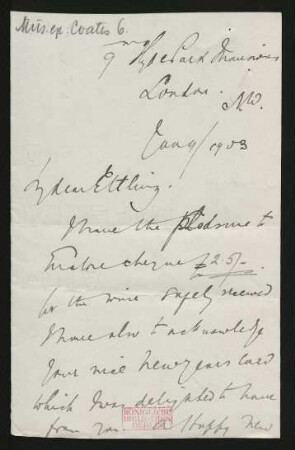 Mus.ep. Coates 6.
9 Hyde Park Mansions
London.
N.W.
Jany 1903
My dear Ettling!
I have the pleasure to
Enclose cheque £25/-
for the wine safely received
I have also to acknowledge
Your nice New Years card
which I was delighted to have
from you. A Happy New